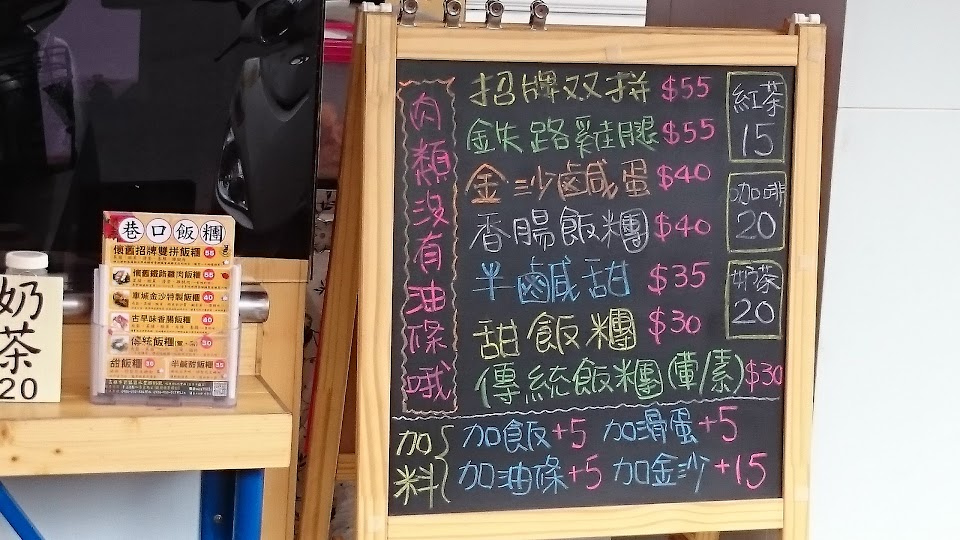 肉類沒有油條哦
招牌双拼 $55
金失路雞腿 $55
金沙鹵咸蛋 $40
香腸飯糰 $40
半鹵咸甜 $35
甜飯糰 $30
傳統飯糰(葷/素) $30
紅茶
15
咖啡
20
奶茶
20
加料
加飯+5 加滑蛋+5
加油條+5 加金沙+15
奶茶
20
巷口飯糰
懷舊招牌雙拼飯糰 55
懷舊鐵路雞肉飯糰 55
車城金沙特製飯糰 40
古早味香腸飯糰 40
傳統飯糰 30
甜飯糰 30
半鹹甜飯糰 35